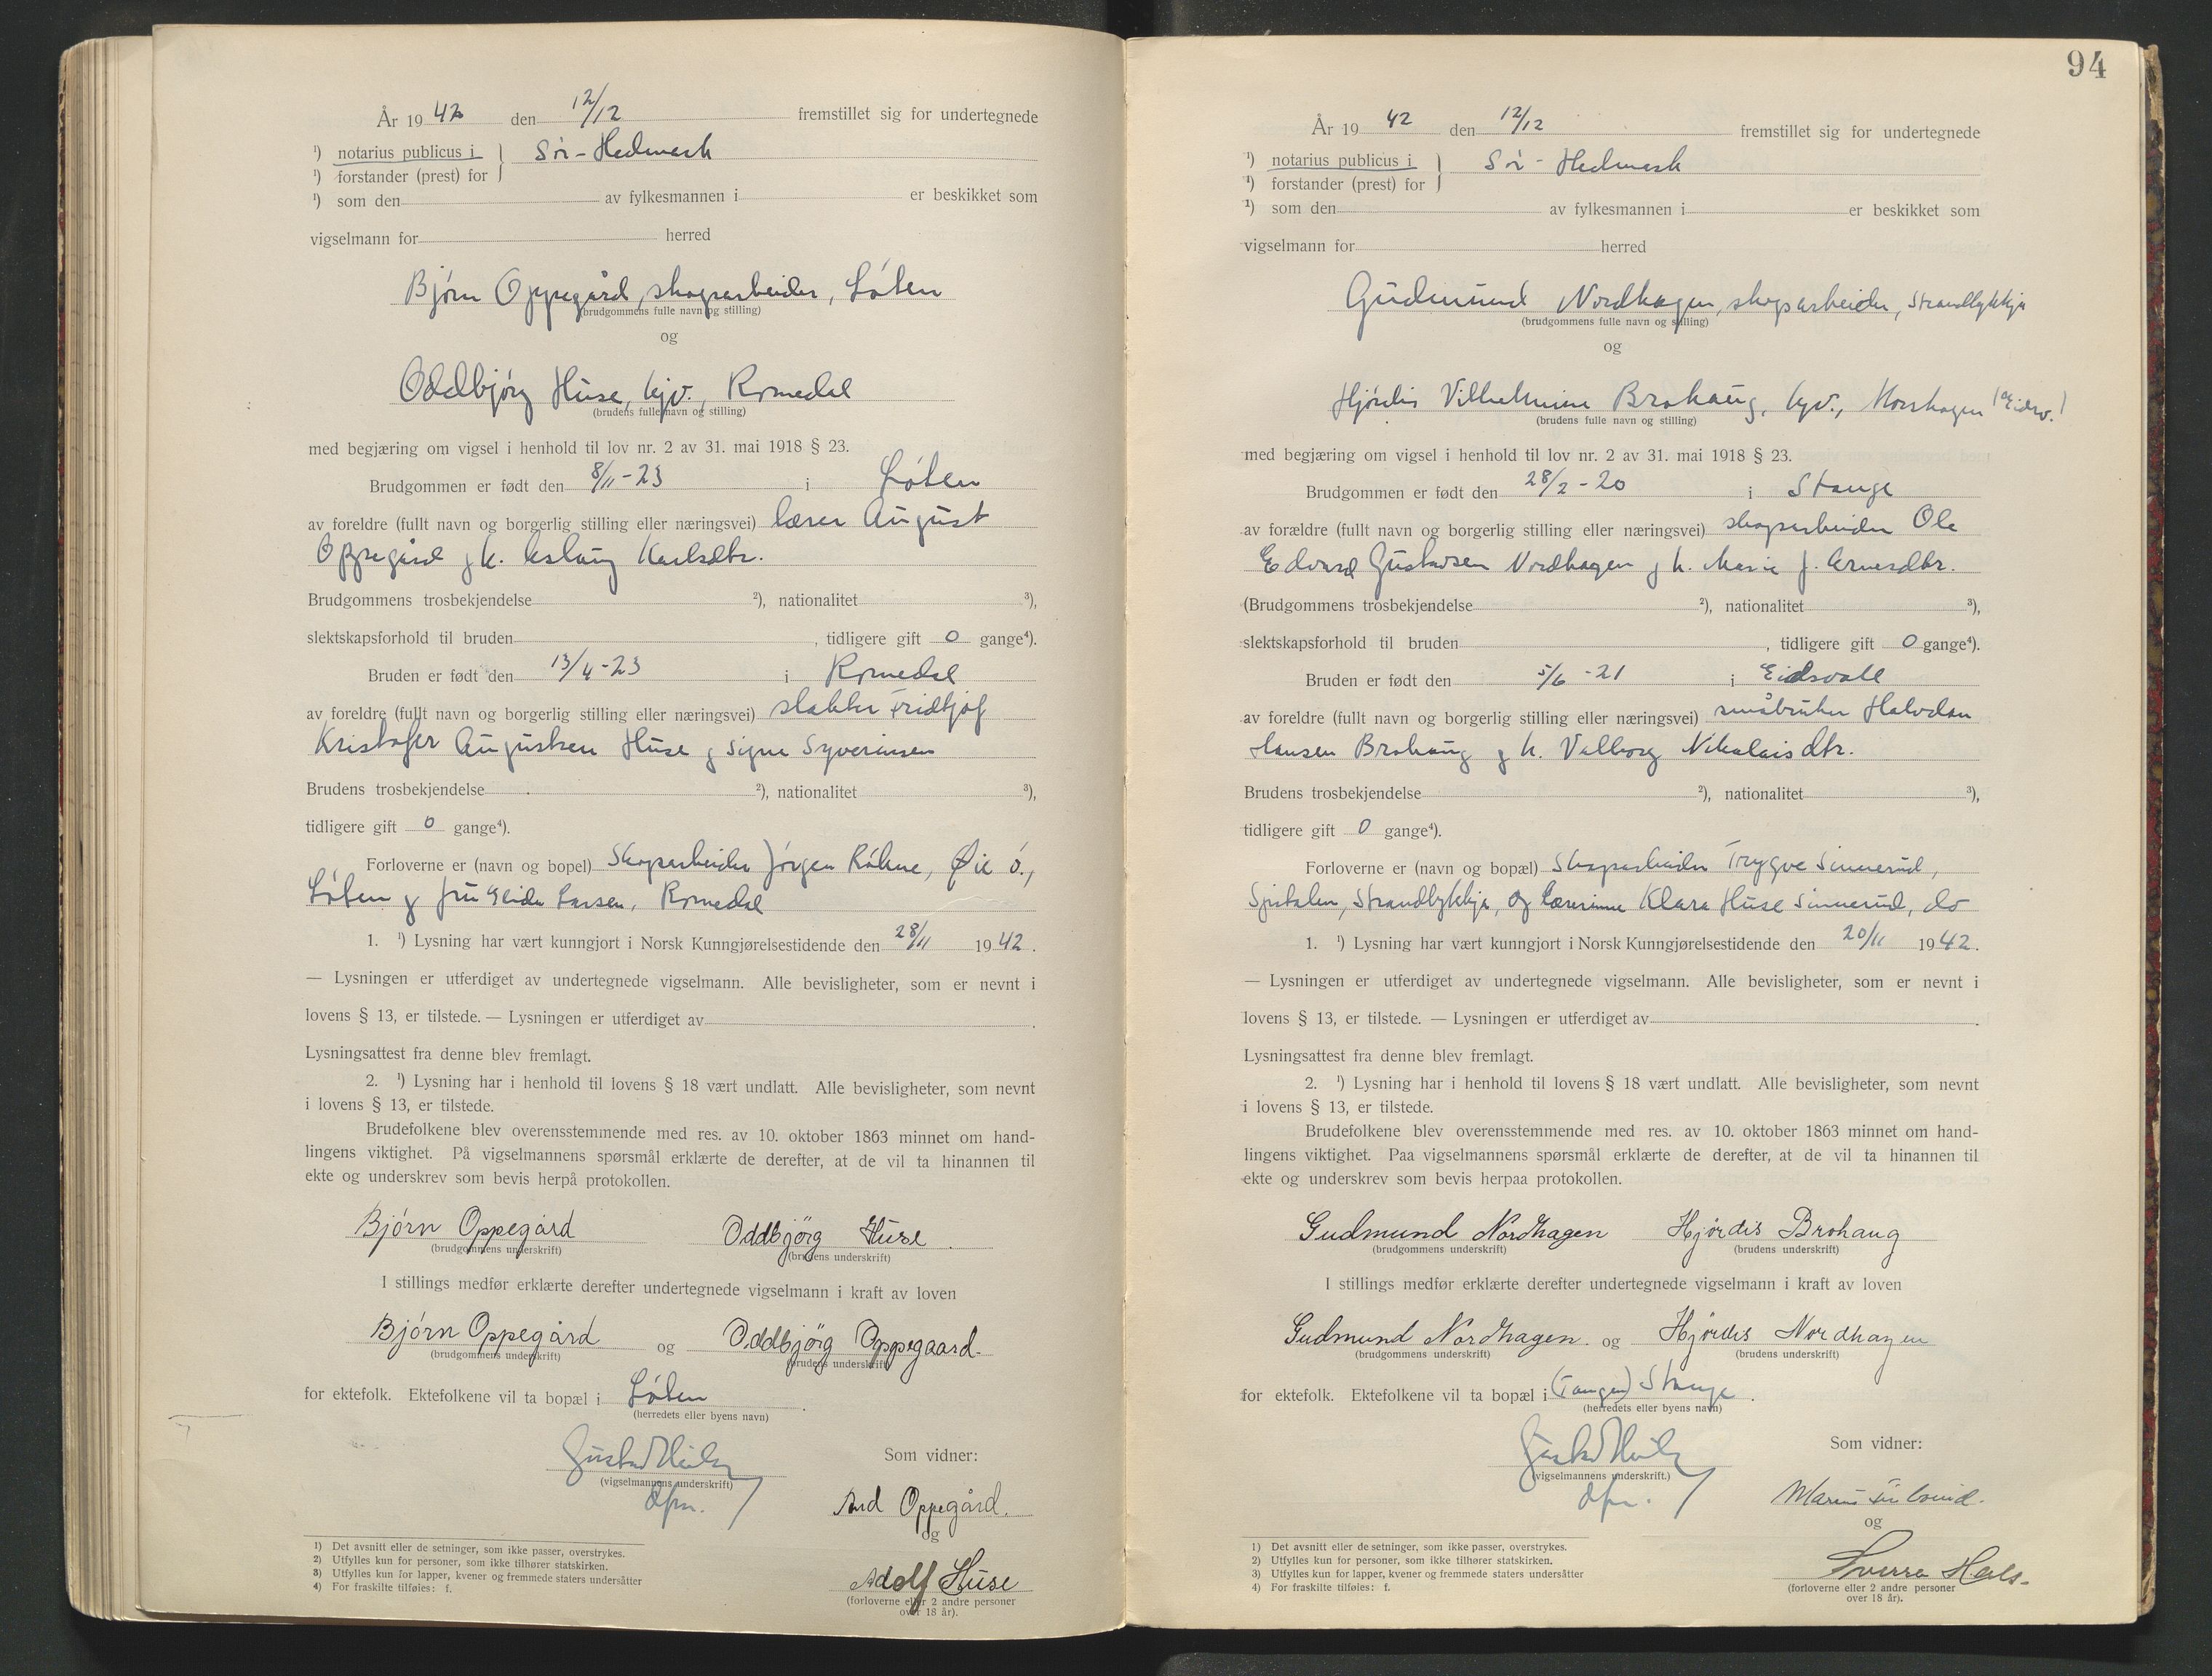 År 1942 den 12/12 fremstillet sig for undertegnede
¹) notarius publicus i } Sør-Hedmark
¹) forstander (prest) for
¹) som den av fylkesmannen i er beskikket som
vigselmann for herred
Bjørn Oppegård, skogsarbeider, Løten
(brudgommens fulle navn og stilling)
og
Oddbjørg Huse, hjv., Romedal
(brudens fulle navn og stilling)
med begjæring om vigsel i henhold til lov nr. 2 av 31. mai 1918 § 23.
Brudgommen er født den 8/11-23 i Løten
av foreldre (fullt navn og borgerlig stilling eller næringsvei) lærer August
Oppegård og h. Aslaug Karlsdtr.
Brudgommens trosbekjendelse ²), nationalitet ³),
slektskapsforhold til bruden , tidligere gift 0 gange⁴).
Bruden er født den 13/4-23 i Romedal
av foreldre (fullt navn og borgerlig stilling eller næringsvei) slakter Fridtjof
Kristofer Augustsen Huse og Signe Syverinsen
Brudens trosbekjendelse ²), nationalitet ³),
tidligere gift 0 gange⁴).
Forloverne er (navn og bopel) Skogsarbeider Jørgen Røhne, Øie ø.,
Løten og fru Larsen, Romedal
1. ¹) Lysning har vært kunngjort i Norsk Kunngjørelsestidende den 28/11 1942.
— Lysningen er utferdiget av undertegnede vigselmann. Alle bevisligheter, som er nevnt i
lovens § 13, er tilstede. — Lysningen er utferdiget av .
Lysningsattest fra denne blev fremlagt.
2. ¹) Lysning har i henhold til lovens § 18 vært undlatt. Alle bevisligheter, som nevnt
i lovens § 13, er tilstede.
Brudefolkene blev overensstemmende med res. av 10. oktober 1863 minnet om hand-
lingens viktighet. På vigselmannens spørsmål erklærte de derefter, at de vil ta hinannen til
ekte og underskrev som bevis herpå protokollen.
Bjørn Oppegård Oddbjørg Huse
(brudgommens underskrift) (brudens underskrift)
I stillings medfør erklærte derefter undertegnede vigselmann i kraft av loven
Bjørn Oppegård og Oddbjørg Oppegaard.
(brudgommens underskrift) (brudens underskrift)
for ektefolk. Ektefolkene vil ta bopæl i Løten .
(herredets eller byens navn)
Som vidner:
(vigselmannens underskrift)
dfm.
Oppegård.
og
Adolf Huse
(forloverne eller 2 andre personer
over 18 år).
1) Det avsnitt eller de setninger, som ikke passer, overstrykes.
2) Utfylles kun for personer, som ikke tilhører statskirken.
3) Utfylles kun for lapper, kvener og fremmede staters undersåtter
4) For fraskilte tilføies: f.
94
År 1942 den 12/12 fremstillet sig for undertegnede
¹) notarius publicus i } Sør-Hedmark
¹) forstander (prest) for
¹) som den av fylkesmannen i er beskikket som
vigselmann for herred
Gudmund Nordhagen, skogsarbeider, Strandlykkja
(brudgommens fulle navn og stilling)
og
Hjørdis Vilhelmine Brohaug, hjv., Morskogen (Eidsv.)
(brudens fulle navn og stilling)
med begjæring om vigsel i henhold til lov nr. 2 av 31. mai 1918 § 23.
Brudgommen er født den 28/2-20 i Stange
av forældre (fullt navn og borgerlig stilling eller næringsvei) skogsarbeider Ole
Edvard Gustavsen Nordhagen og h. Marie f. Arnesdtr.
(Brudgommens trosbekjendelse ²), nationalitet ³),
slektskapsforhold til bruden , tidligere gift 0 gange⁴).
Bruden er født den 5/6-21 i Eidsvoll
av foreldre (fullt navn og borgerlig stilling eller næringsvei) småbruker Halvdan
Hansen Brohaug og h. Valborg Nikolaisdtr.
Brudens trosbekjendelse ²), nationalitet ³),
tidligere gift 0 gange⁴).
Forloverne er (navn og bopæl) Skogsarbeider Trygve Sinnerud,
Spitalen, Strandlykkja, og lærerinne Klara Huse Sinnerud, do
1. ¹) Lysning har vært kunngjort i Norsk Kunngjørelsestidende den 20/11 1942.
— Lysningen er utferdiget av undertegnede vigselmann. Alle bevisligheter, som er nevnt i
lovens § 13, er tilstede. — Lysningen er utferdiget av .
Lysningsattest fra denne blev fremlagt.
2. ¹) Lysning har i henhold til lovens § 18 vært undlatt. Alle bevisligheter, som nevnt
i lovens § 13, er tilstede.
Brudefolkene blev overensstemmende med res. av 10. oktober 1863 minnet om hand-
lingens viktighet. Paa vigselmannens spørsmål erklærte de derefter, at de vil ta hinannen til
ekte og underskrev som bevis herpaa protokollen.
Gudmund Nordhagen Hjørdis Brohaug
(brudgommens underskrift) (brudens underskrift)
I stillings medfør erklærte derefter undertegnede vigselmann i kraft av loven
Gudmund Nordhagen. og Hjørdis Nordhagen
(brudgommens underskrift) (brudens underskrift)
for ektefolk. Ektefolkene vil ta bopæl i (Tangen) Stange .
(herredets eller byens navn)
Som vidner:
(vigselmannens underskrift.)
dfm.
og
Sverre Hals.
(forloverne eller 2 andre personer
over 18 år).
1) Det avsnitt eller de setninger, som ikke passer, overstrykes.
2) Utfylles kun for personer, som ikke tilhører statskirken.
3) Utfylles kun for lapper, kvener og fremmede staters undersåtter
4) For fraskilte tilføies: f.